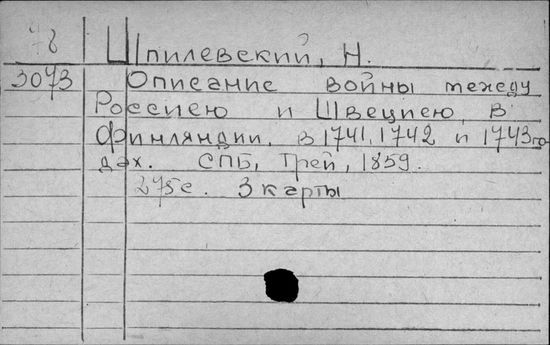 78 Шпилевский, Н.
3073 Описание войны между
Россиею и Швециею в
Финляндии в 1741, 1742 и 1743 го
дах. СПБ, Трей, 1859.
275 с. 3 карты